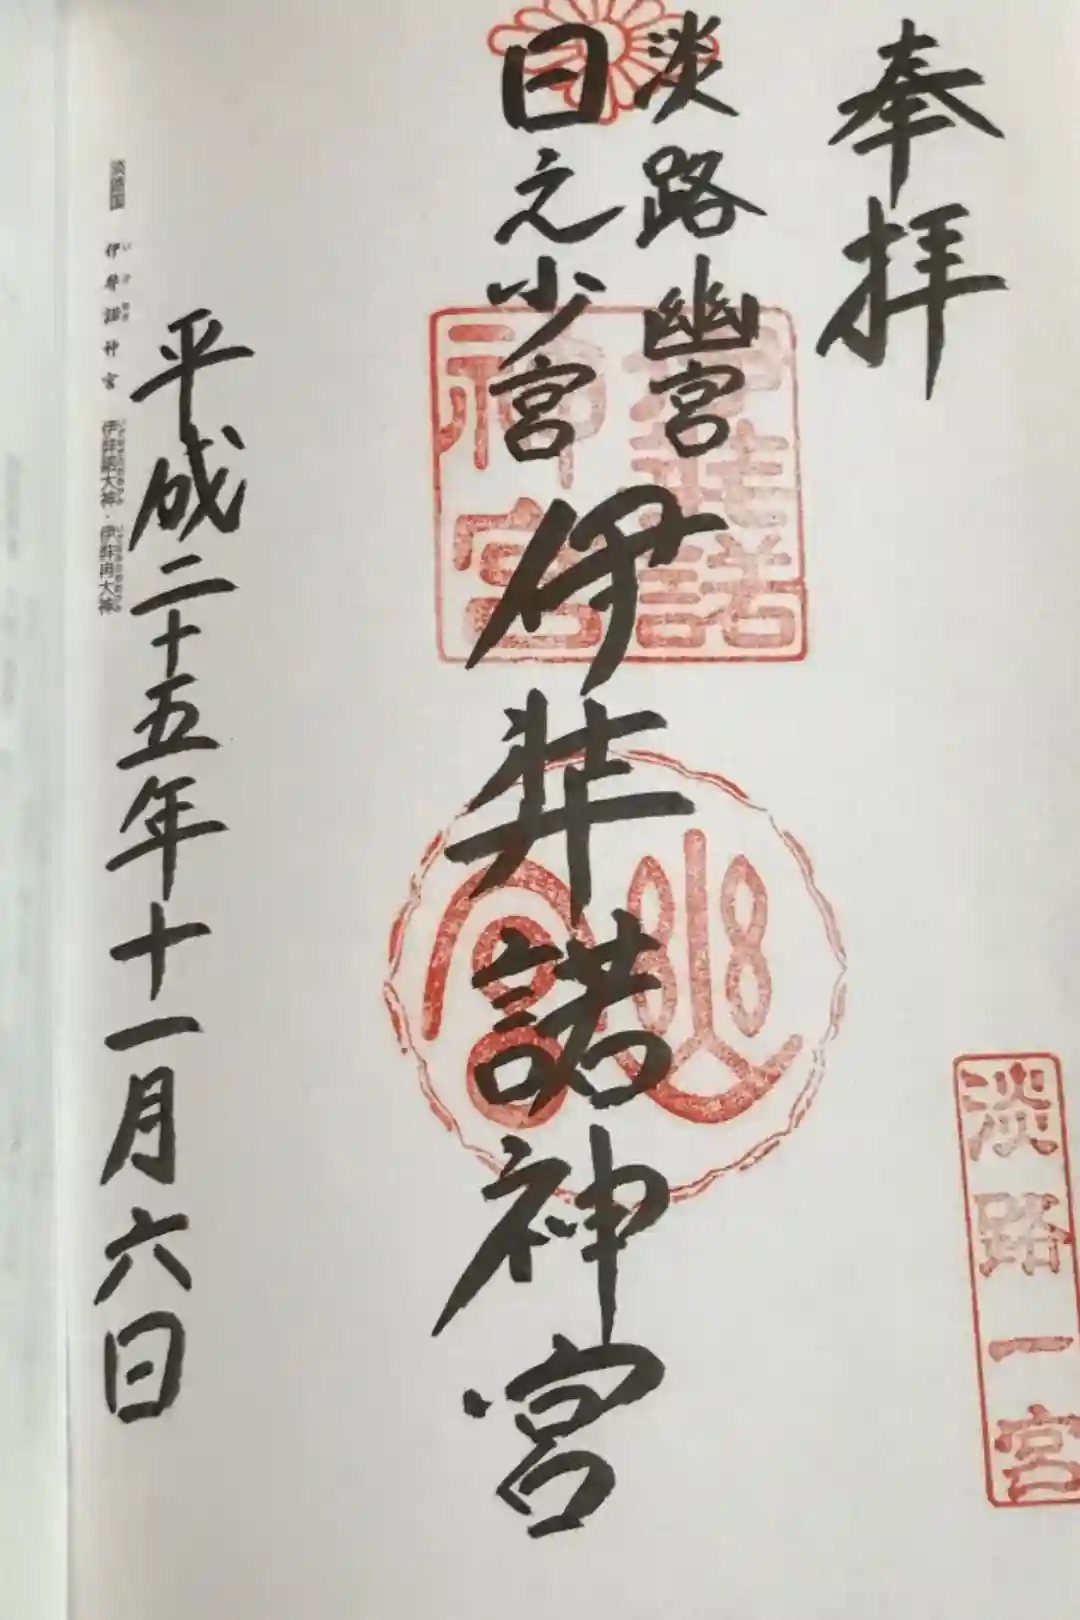 奉拝
淡路幽宮
日之少宮
伊弉諾神宮
平成二十五年十一月六日
淡路一宮
伊弉諾
神宮
幽宮
淡路国 伊弉諾神宮 伊弉諾大神・伊弉冉大神